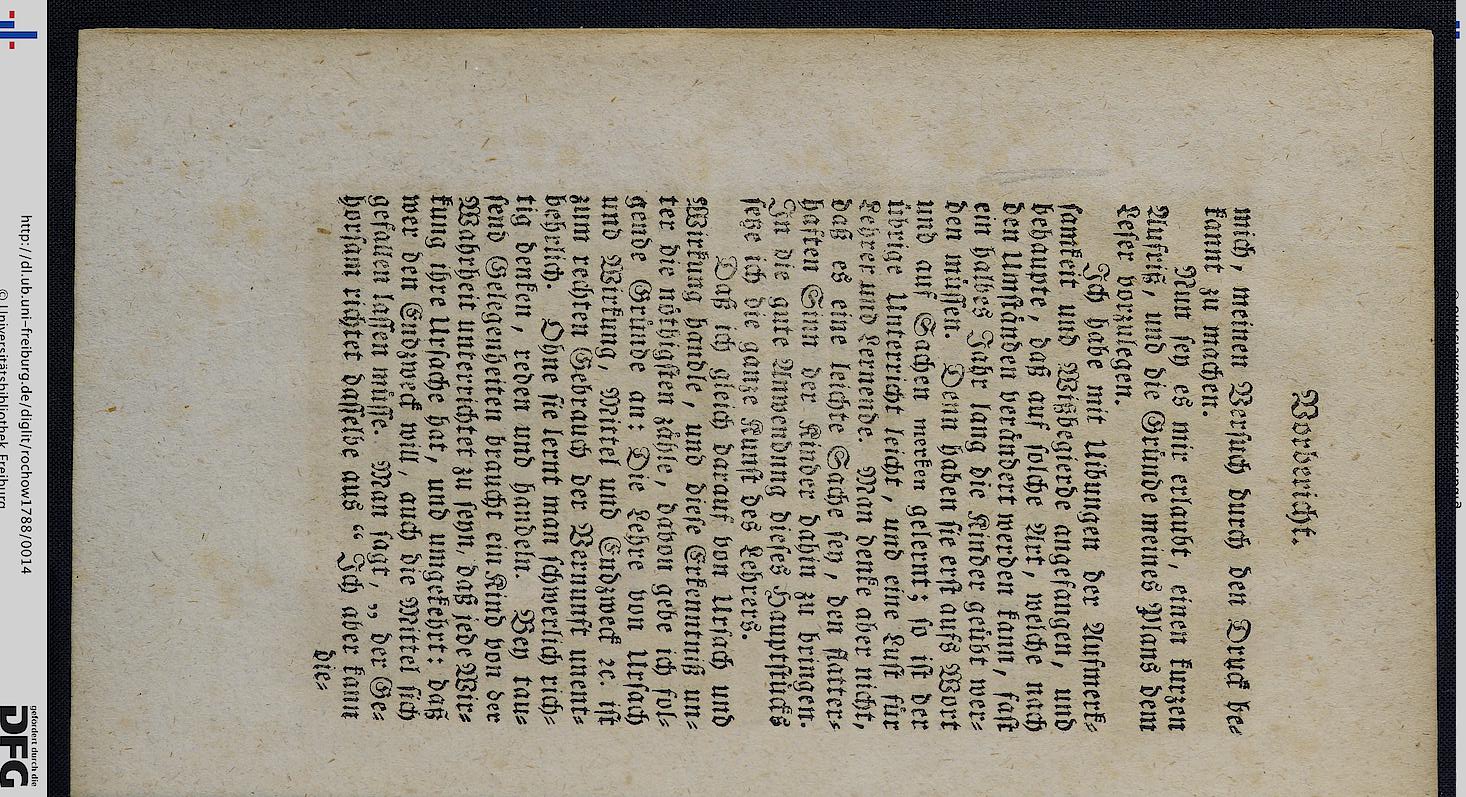 Vorbericht.
mich, meinen Versuch durch den Druck be-
kannt zu machen.
Nun sey es mir erlaubt, einen kurzen
Aufriß, und die Gründe meines Plans dem
Leser vorzulegen.
Ich habe mit Uibungen der Aufmerk-
samkeit und Wißbegierde angefangen, und
behaupte, daß auf solche Art, welche nach
den Umständen verändert werden kann, fast
ein halbes Jahr lang die Kinder geübt wer-
den müssen. Denn haben sie erst aufs Wort
und auf Sachen merken gelernt; so ist der
übrige Unterricht leicht, und eine Lust für
Lehrer und Lernende. Man denke aber nicht,
daß es eine leichte Sache sey, den flatter-
haften Sinn der Kinder dahin zu bringen.
In die gute Anwendung dieses Hauptstücks
setze ich die ganze Kunst des Lehrers.
Daß ich gleich darauf von Ursach und
Wirkung handle, und diese Erkenntniß un-
ter die nöthigsten zähle, davon gebe ich fol-
gende Gründe an: Die Lehre von Ursach
und Wirkung, Mittel und Endzweck ꝛc. ist
zum rechten Gebrauch der Vernunft unent-
behrlich. Ohne sie lernt man schwerlich rich-
tig denken, reden und handeln. Bey tau-
send Gelegenheiten braucht ein Kind von der
Wahrheit unterrichtet zu seyn, daß jede Wir-
kung ihre Ursache hat, und umgekehrt: daß
wer den Endzweck will, auch die Mittel sich
gefallen lassen müsse. Man sagt, „ der Ge-
horsam richtet dasselbe aus “ Ich aber kann
die-
http://dl.ub.uni-freiburg.de/diglit/rochow1788/0014
© Universitätsbibliothek Freiburg
gefördert durch die
DFG